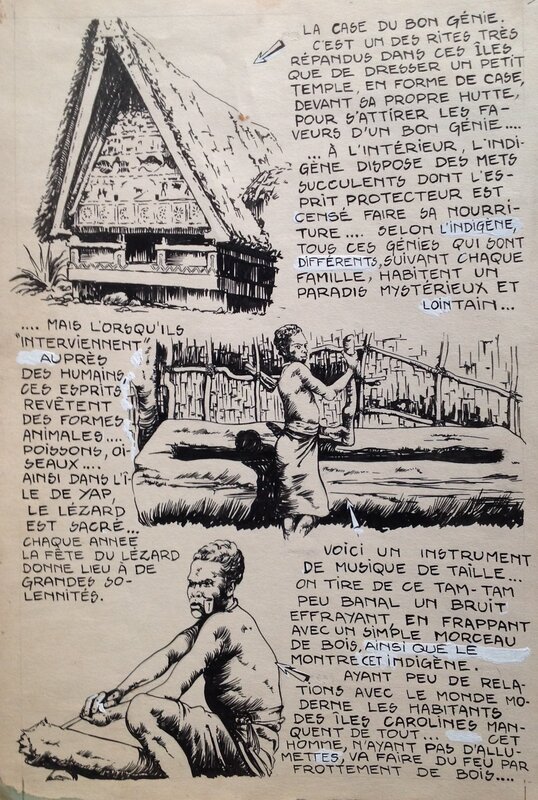 LA CASE DU BON GÉNIE.
C'EST UN DES RITES TRÈS
RÉPANDUS DANS CES ÎLES
QUE DE DRESSER UN PETIT
TEMPLE, EN FORME DE CASE,
DEVANT SA PROPRE HUTTE,
POUR S'ATTIRER LES FA-
VEURS D'UN BON GÉNIE....
... À L'INTÉRIEUR, L'INDI-
GÈNE DISPOSE DES METS
SUCCULENTS DONT L'ES-
PRIT PROTECTEUR EST
CENSÉ FAIRE SA NOURRI-
TURE.... SELON L'INDIGÈNE,
TOUS CES GÉNIES QUI SONT
DIFFÉRENTS, SUIVANT CHAQUE
FAMILLE, HABITENT UN
PARADIS MYSTÉRIEUX ET
LOINTAIN...
.... MAIS L'ORSQU'ILS
"INTERVIENNENT"
AUPRÈS
DES HUMAINS,
CES ESPRITS
REVÊTENT
DES FORMES
ANIMALES....
POISSONS, OI-
SEAUX....
AINSI DANS L'Î-
LE DE YAP,
LE LÉZARD
EST SACRÉ...
CHAQUE ANNÉE
LA FÊTE DU LÉZARD
DONNE LIEU À DE
GRANDES SO-
LENNITÉS.
VOICI UN INSTRUMENT
DE MUSIQUE DE TAILLE...
ON TIRE DE CE TAM-TAM
PEU BANAL UN BRUIT
EFFRAYANT, EN FRAPPANT
AVEC UN SIMPLE MORCEAU
DE BOIS, AINSI QUE LE
MONTRE CET INDIGÈNE.
AYANT PEU DE RELA-
TIONS AVEC LE MONDE MO-
DERNE LES HABITANTS
DES ÎLES CAROLINES MAN-
QUENT DE TOUT... CET
HOMME, N'AYANT PAS D'ALLU-
METTRES, VA FAIRE DU FEU PAR
FROTTEMENT DE BOIS....